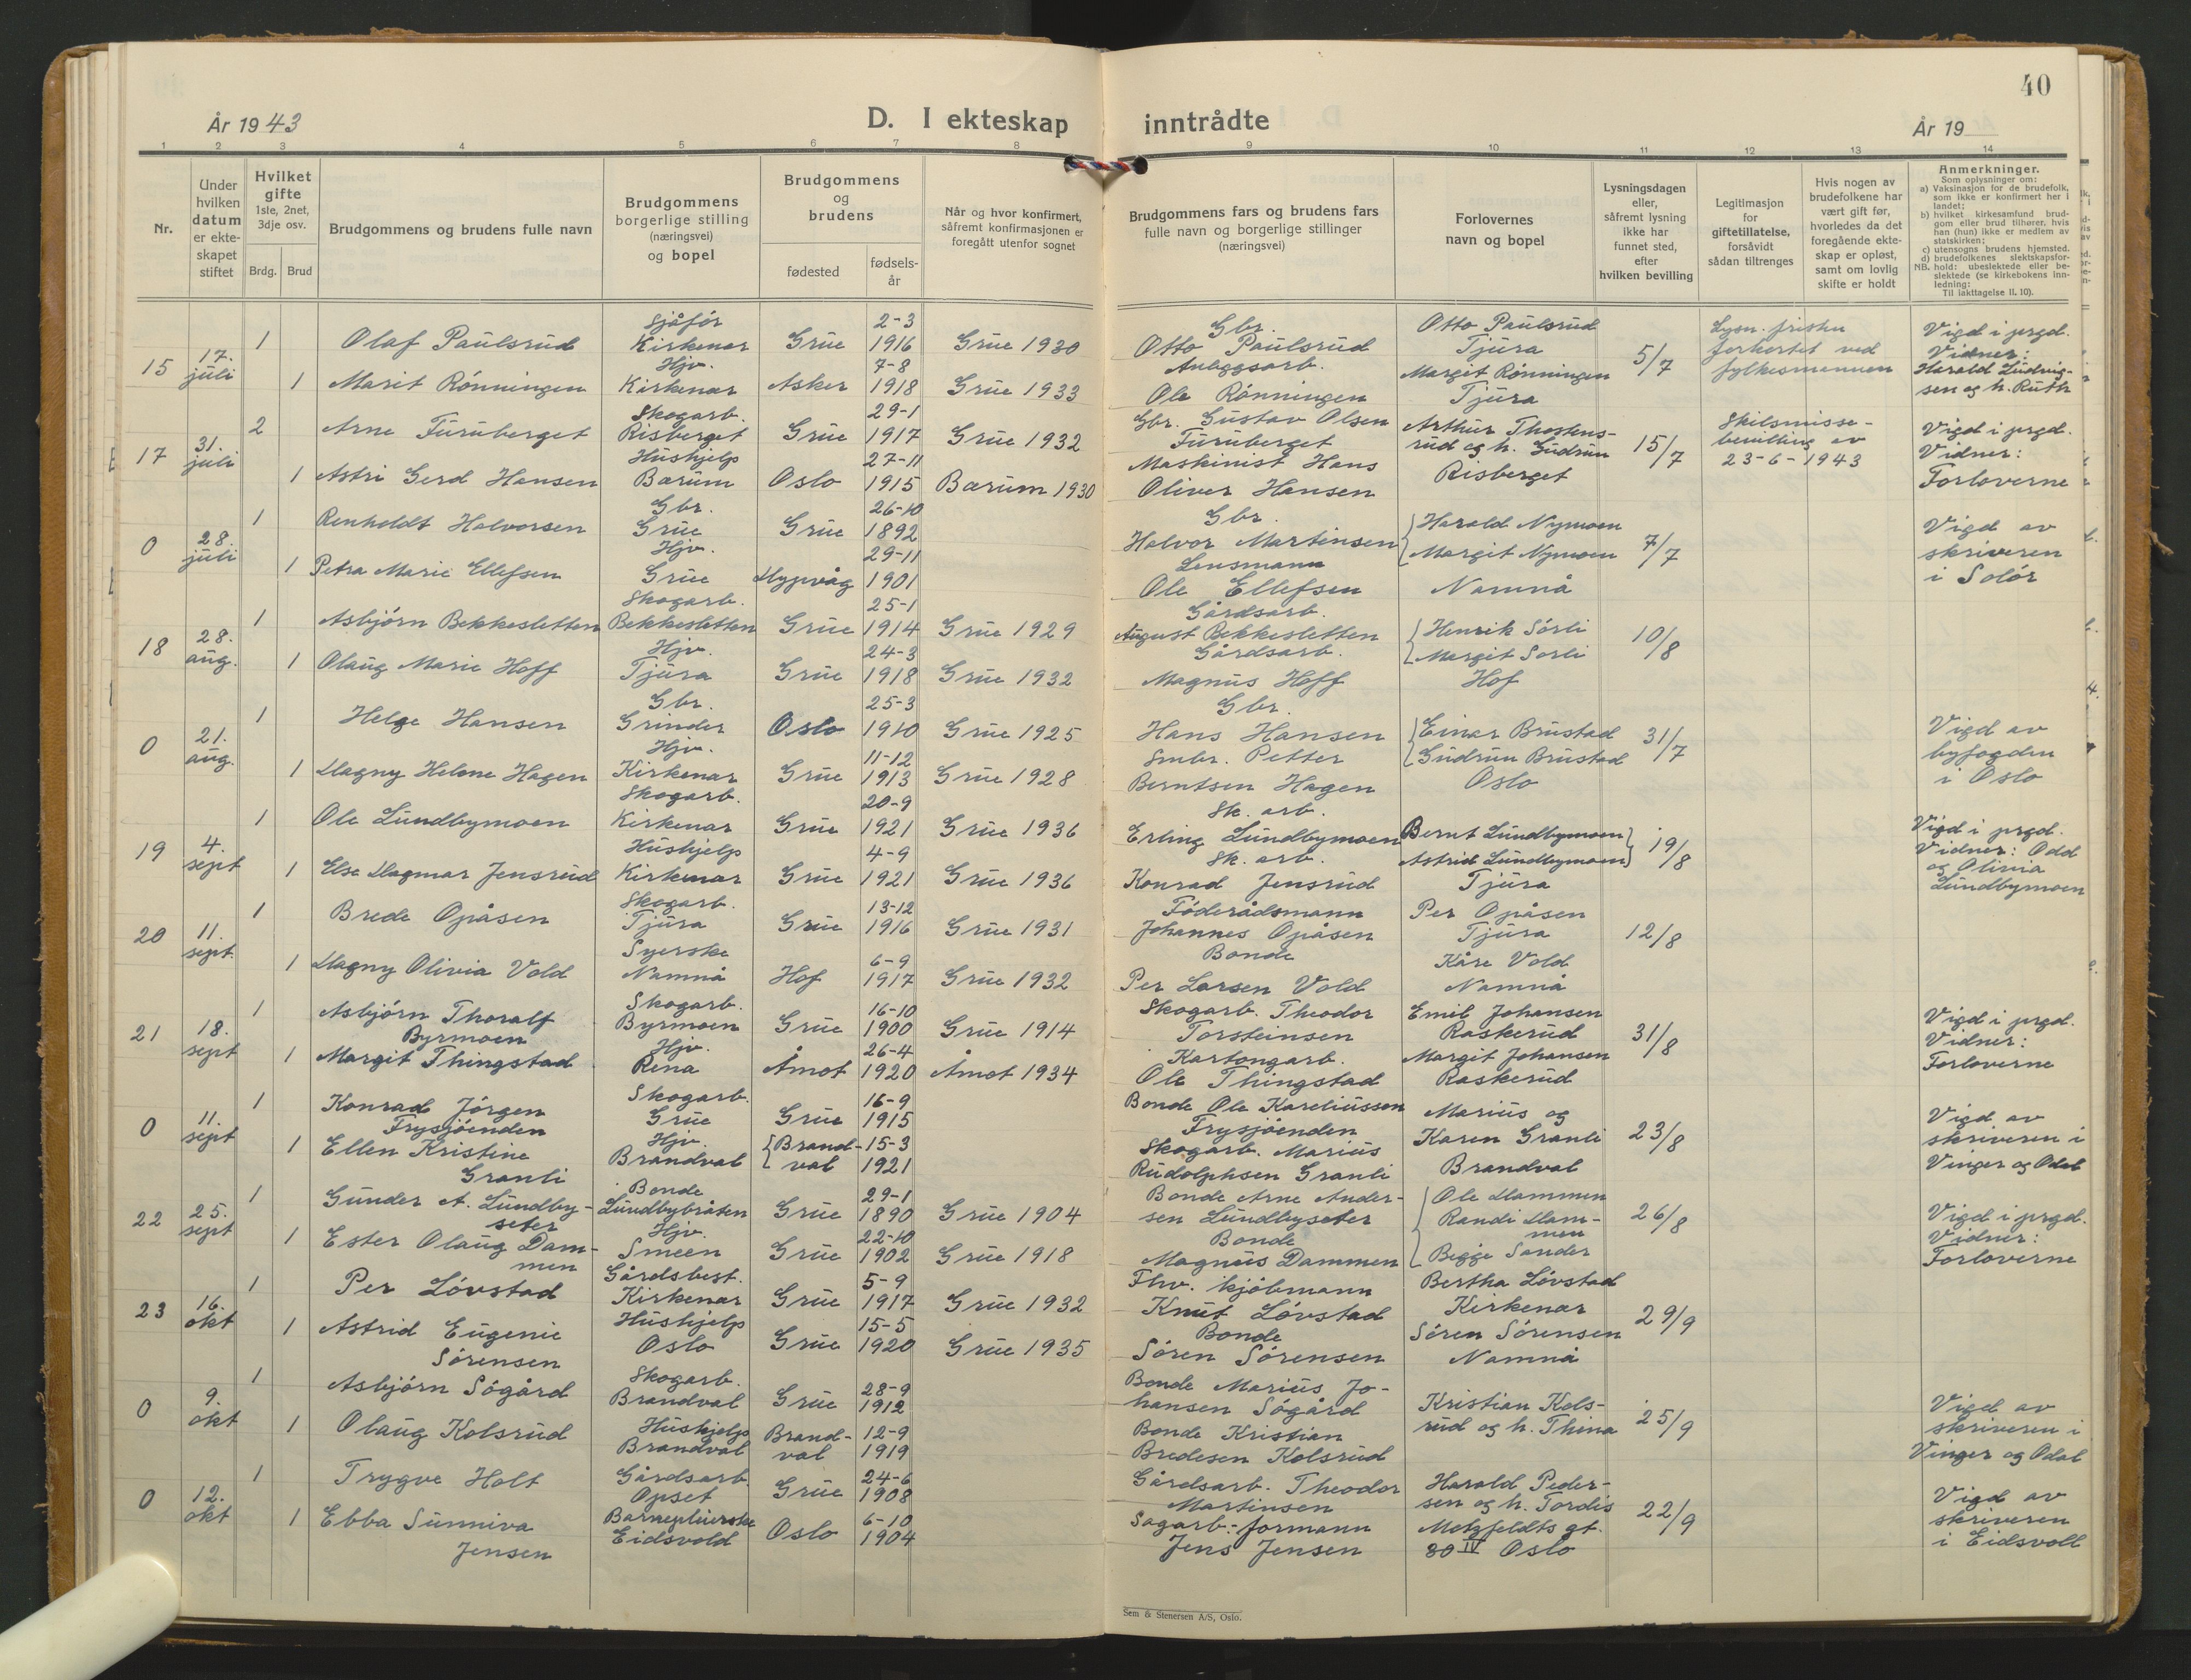 40
År 1943
D. I ekteskap inntrådte
År 19
1 2 3 4 5 6 7 8 9 10 11 12 13 14
Nr.
Under hvilken datum er ekteskapet stiftet
Hvilket gifte
1ste, 2net, 3dje osv.
Brdg. Brud
Brudgommens og brudens fulle navn
Brudgommens borgerlige stilling (næringsvei) og bopel
Brudgommens og brudens
fødested
fødsels-år
Når og hvor konfirmert, såfremt konfirmasjonen er foregått utenfor sognet
Brudgommens fars og brudens fars fulle navn og borgerlige stillinger (næringsvei)
Forlovernes navn og bopel
Lysningsdagen eller, såfremt lysning ikke har funnet sted, efter hvilken bevilling
Legitimasjon for giftetillatelse, forsåvidt sådan tiltrenges
Hvis nogen av brudefolkene har vært gift før, hvorledes da det foregående ekteskap er opløst, samt om lovlig skifte er holdt
Anmerkninger.
Som oplysninger om:
a) Vaksinasjon for de brudefolk, som ikke er konfirmert her i landet;
b) hvilket kirkesamfund brudgom eller brud tilhører, hvis han (hun) ikke er medlem av statskirken;
c) utensogns brudens hjemsted.
d) brudefolkenes slektskapsforhold: ubeslektede eller beslektede (se kirkebokens innledning:
NB. Til iakttagelse II. 10).
15 17. juli 1 Olaf Paulsrud Sjåför Kirkenær Grue 2-3 1916 Grue 1930 Gbr. Otto Paulsrud Otto Paulsrud Tjura 5/7 Lysn. fristen forkortet ved fylkesmannen Vigd i prgd. Vidner: Harald Ludvigsen og h. Ruth
1 Marit Rønningen Hjv. Kirkenær Asker 7-8 1918 Grue 1933 Anleggsarb. Ole Rønningen Margit Rønningen Tjura
17 31. juli 2 Arne Furuberget Skogarb. Risberget Grue 29-1 1917 Grue 1932 Gbr. Gustav Olsen Furuberget Arthur Thostensrud og h. Gudrun Risberget 15/7 Skilsmissebevilling av 23-6-1943 Vigd i prgd. Vidner: Forloverne
1 Astri Gerd Hansen Hushjelp Bærum Oslo 27-11 1915 Bærum 1930 Maskinist Hans Oliver Hansen
0 28. juli 1 Renholdt Halvorsen Gbr. Grue Grue 26-10 1892 Gbr. Halvor Martinsen Harald Nymoen Margit Nymoen Namnå 7/7 Vigd av skriveren i Solör
1 Petra Marie Ellefsen Hjv. Grue Dypvåg 29-11 1901 Lensmann Ole Ellefsen
18 28. aug. 1 Asbjörn Bekkesletten Skogarb. Bekkesletten Grue 25-1 1914 Grue 1929 Gårdsarb. August Bekkesletten Henrik Sörli Margit Sorli Hof 10/8
1 Olaug Marie Hoff Hjv. Tjura Grue 24-3 1918 Grue 1932 Gårdsarb. Magnus Hoff
0 21. aug. 1 Helge Hansen Gbr. Grinder Oslo 25-3 1910 Grue 1925 Gbr. Hans Hansen Einar Brustad Gudrun Brustad Oslo 31/7 Vigd av byfogden i Oslo
1 Dagny Helene Hagen Hjv. Kirkenær Grue 11-12 1913 Grue 1928 Smbr. Petter Berntsen Hagen
19 4. sept 1 Ole Lundbymoen Skogarb. Kirkenær Grue 20-9 1921 Grue 1936 Sk. arb. Erling Lundbymoen Bernt Lundbymoen Astrid Lundbymoen Tjura 19/8 Vigd i prgd. Vidner: Odd og Olivia Lundbymoen
1 Else Dagmar Jensrud Hushjelp Kirkenær Grue 4-9 1921 Grue 1936 Sk. arb. Konrad Jensrud
20 11. sept. 1 Brede Opåsen Skogarb. Tjura Grue 13-12 1916 Grue 1931 Föderådsmann Johannes Opåsen Per Opåsen Tjura 12/8
1 Dagny Olivia Vold Syerske Namnå Hof 6-9 1917 Grue 1932 Bonde Per Larsen Vold Kåre Vold Namnå
21 18. sept 1 Asbjörn Thoralf Byrmoen Skogarb. Byrmoen Grue 16-10 1900 Grue 1914 Skogarb. Theodor Torsteinsen Emil Johansen Raskerud 31/8 Vigd i prgd. Vidner: Forloverne
1 Margit Thingstad Hjv. Rena Åmot 26-4 1920 Åmot 1934 Kartongarb. Ole Thingstad Margit Johansen Raskerud
0 11. sept 1 Konrad Jörgen Frysjöenden Skogarb. Grue Grue 16-9 1915 Bonde Ole Kareliussen Frysjöenden Marius og Karen Granli Brandval 23/8 Vigd av skriveren i Vinger og Odal
1 Ellen Kristine Granli Hjv. Brandval Brandval 15-3 1921 Skogarb. Marius Rudolphsen Granli
22 25. sept 1 Gunder A. Lundbyseter Bonde Lundbybråten Grue 29-1 1890 Grue 1904 Bonde Arne Andersen Lundbyseter Ole Dammen Randi Dammen Begge Sander 26/8 Vigd i prgd. Vidner: Forloverne
1 Ester Olaug Dammen Hjv. Smeen Grue 22-10 1902 Grue 1918 Bonde Magnus Dammen
23 16. okt 1 Per Lövstad Gårdsbest. Kirkenær Grue 5-9 1917 Grue 1932 Fhv. kjöbmann Knut Lövstad Bertha Lövstad Kirkenær 29/9
1 Astrid Eugenie Sörensen Hushjelp Oslo Grue 15-5 1920 Grue 1935 Bonde Sören Sörensen Sören Sörensen Namnå
0 9. okt 1 Asbjörn Sögård Skogarb. Brandval Grue 28-9 1912 Bonde Marius Johansen Sögård Kristian Kolsrud og h. Thina 25/9 Vigd av skriveren i Vinger og Odal
1 Olaug Kolsrud Hushjelp Brandval Brandval 12-9 1919 Bonde Kristian Bredesen Kolsrud
0 12. okt 1 Trygve Holt Gårdsarb. Opset Grue 24-6 1908 Gårdsarb. Theodor Martinsen Harald Pedersen og h. Tordis Metzfeldts gt. 80 IV Oslo 22/9 Vigd av skriveren i Eidsvoll
1 Ebba Sunniva Jensen Barnepleierske Eidsvold Oslo 6-10 1904 Sagarb.-formann Jens Jensen
Sem & Stenersen A/S, Oslo.